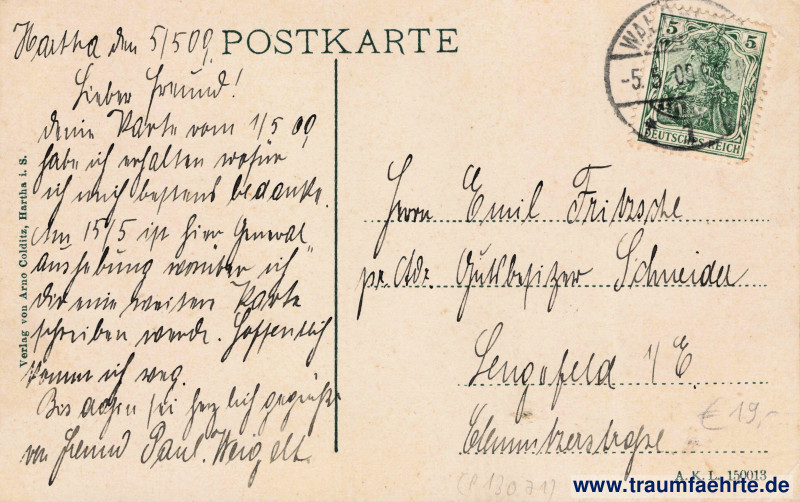 Hartha den 5/5 09.
POSTKARTE
Lieber Freund!
deine Karte vom 1/5 09
habe ich erhalten wofür
ich mich bestens bedanke.
Am 15/5 ist hier General
aushebung worüber ich
dir eine weitere Karte
schreiben werde. Hoffentlich
komm ich weg.
Bis dahin sei herzlich gegrüßt
von Freund Paul. Weigelt.
Verlag von Arno Colditz, Hartha i. S.
5 5
DEUTSCHES REICH
-5. 5. 09
Herrn Emil Fritzsche
pr. Adr. Gutsbesitzer Schneider
Lengefeld i/E.
Chemnitzerstraße
€ 19,-
A. K. L. 150013
www.traumfaehrte.de